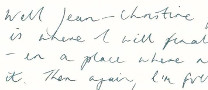 Well Jean-Christine
is where I will final
- in a place where n
it. Then again, I'm